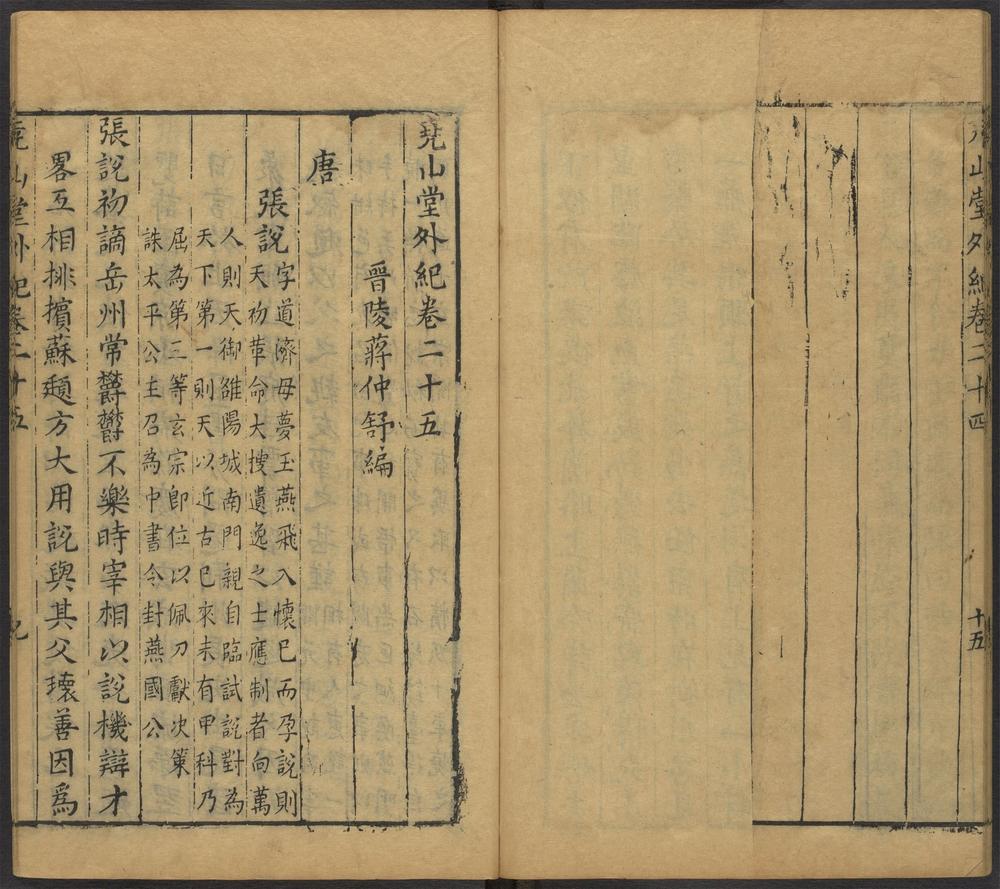 堯山堂外紀卷二十四
十五
堯山堂外紀卷二十五
晉陵蔣仲舒編
唐
張說字道濟母夢玉燕飛入懷已而孕說則
天初革命大搜遺逸之士應制者向萬
人則天御雒陽城南門親自臨試說對為
天下第一則天以近古已來未有甲科乃
屈為第三等玄宗即位以佩刀獻決策
誅太平公主召為中書令封燕國公
張說初謫岳州常欝欝不樂時宰相以說機辯才
畧互相排擯蘇頲方大用說與其父瓌善因為
堯山堂外紀卷二十五